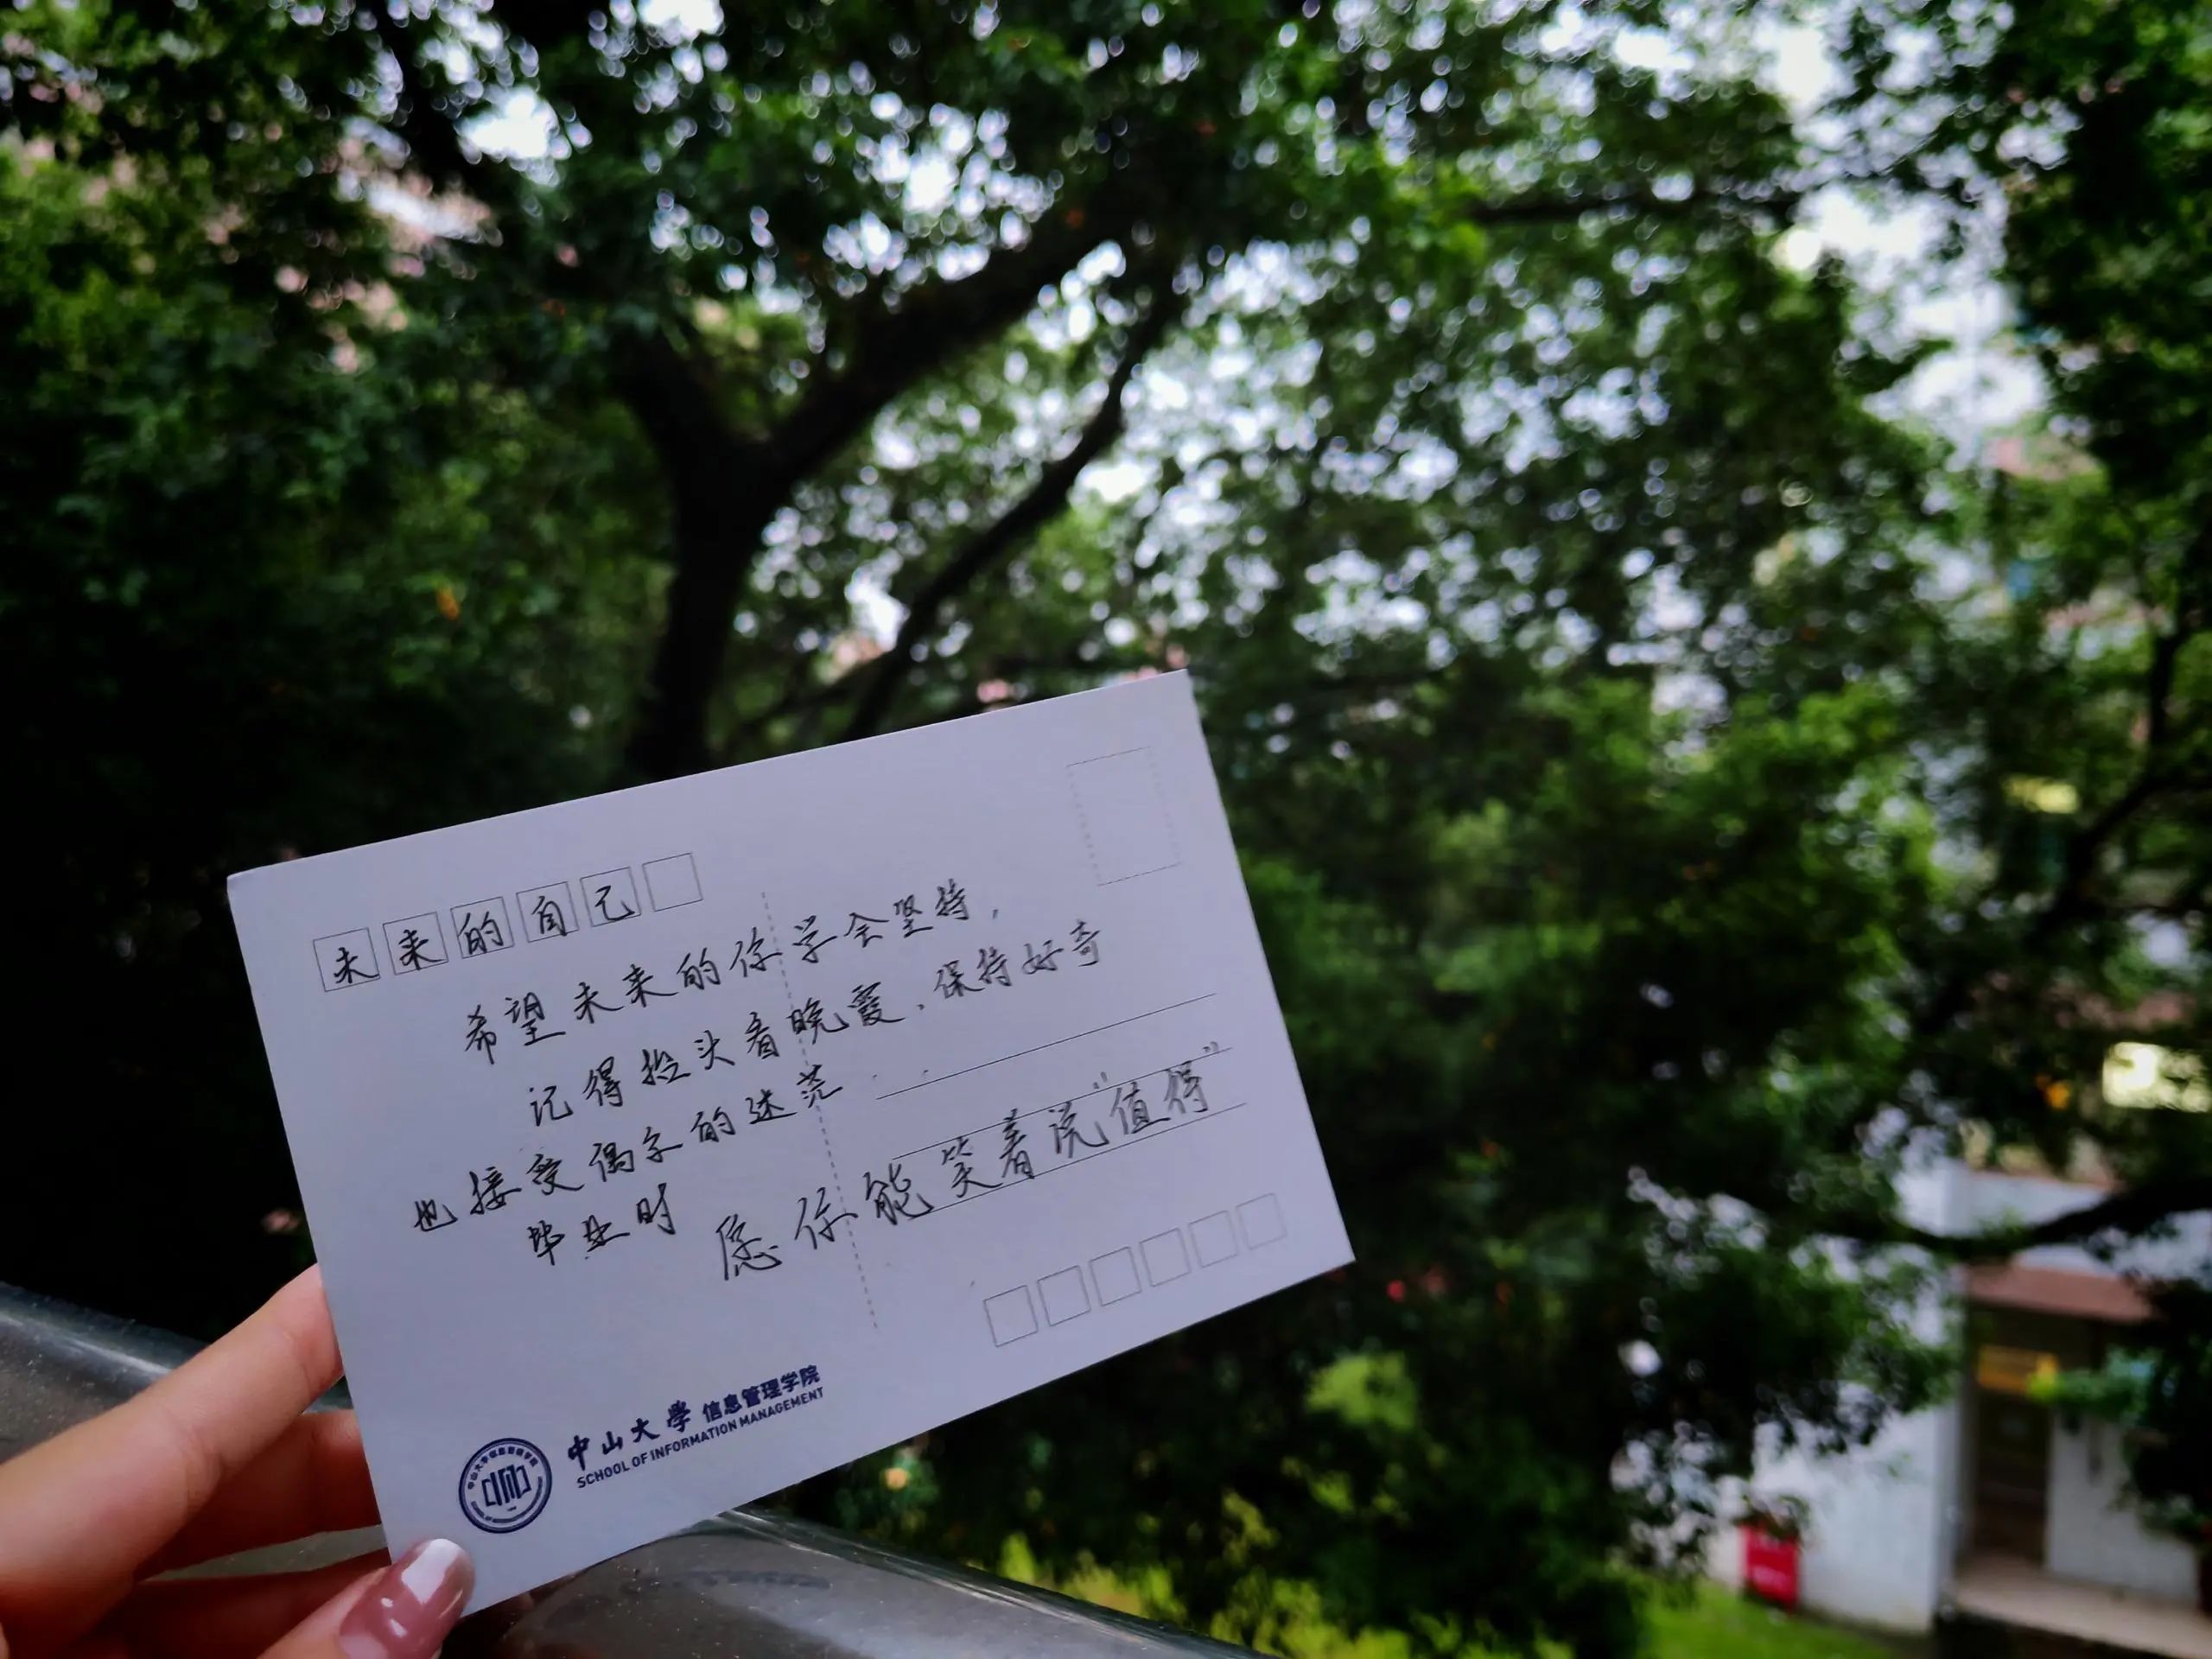 未来的自己
希望未来的你学会坚持，
记得抬头看晚霞，保持好奇
也接受偶尔的迷茫
毕业时 愿你能笑着说“值得”
中山大学 信息管理学院
SCHOOL OF INFORMATION MANAGEMENT